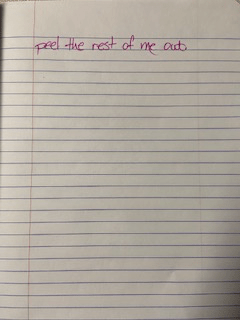 peel the rest of me